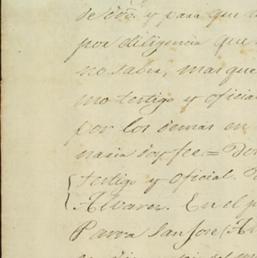 y para que
por diligencia que
no sabe, mas que
mo testigo y oficia
por los demas en
naria doy fee. =
testigo y oficial.
Alvarez. En el p
Parra San Jose (A